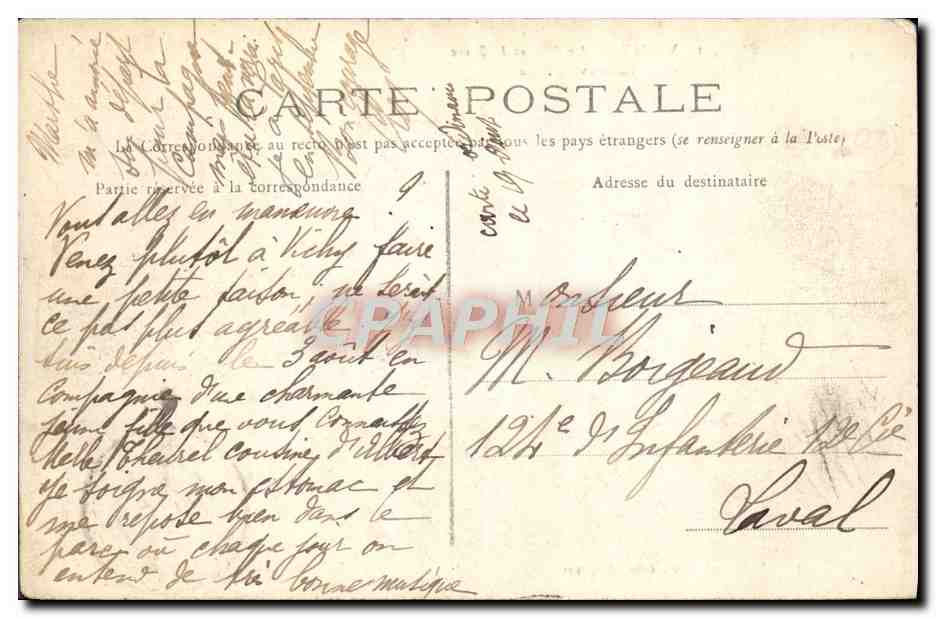 CARTE POSTALE
La Correspondance au recto n'est pas acceptée par tous les pays étrangers (se renseigner à la Poste)
Partie réservée à la correspondance
Adresse du destinataire
Marthe
m'a annoncé
départ
pour la
campagne
bon courage
Vous allez en manœuvre ?
Venez plutôt à Vichy faire
une petite saison, ne serait
ce pas plus agréable. J'y
suis depuis le 3 août en
compagnie d'une charmante
jeune fille que vous connaissez
Melle cousine d'Albert
Je soigne mon estomac et
me repose bien dans le
parc où chaque jour on
entend de très bonne musique
carte
le 19 août
Monsieur
M. Borgeaud
124e d'Infanterie 12e Cie
Laval
CPAPHIL